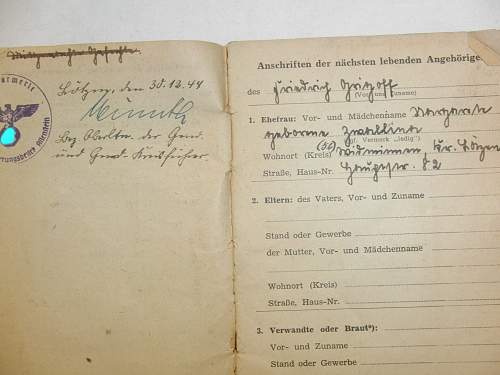 Mitgemachte Gefechte.
Lötzen, den 30.12.44
Bez. Oberltn. der Gend.
und Gend. Kreisführer.
Anschriften der nächsten lebenden Angehörige
des Friedrich
(Vor- und Zuname)
1. Ehefrau: Vor- und Mädchenname Margarete
geborene
(ggf. Vermerk „ledig")
Wohnort (Kreis) Widminnen, Kr. Lötzen
Straße, Haus-Nr. Hauptstr. 82
2. Eltern: des Vaters, Vor- und Zuname
Stand oder Gewerbe
der Mutter, Vor- und Mädchenname
Wohnort (Kreis)
Straße, Haus-Nr.
3. Verwandte oder Braut*):
Vor- und Zuname
Stand oder Gewerbe